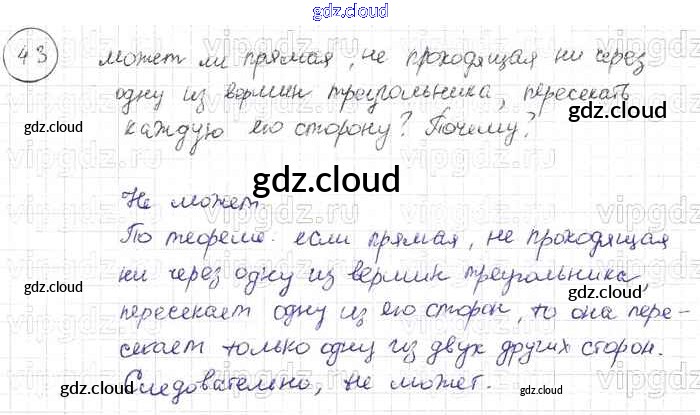 gdz.cloud
43 может ли прямая, не проходящая ни через
одну из вершин треугольника, пересекать
gdz.cloud
gdz.cloud
каждую его сторону? Почему?
gdz.cloud
Не может.
По теореме: если прямая, не проходящая
ни через одну из вершин треугольника,
gdz.cloud
gdz.cloud
пересекает одну из его сторон, то она пере-
секает только одну из двух других сторон.
Следовательно, не может.
gdz.cloud
gdz.cloud
gdz.cloud